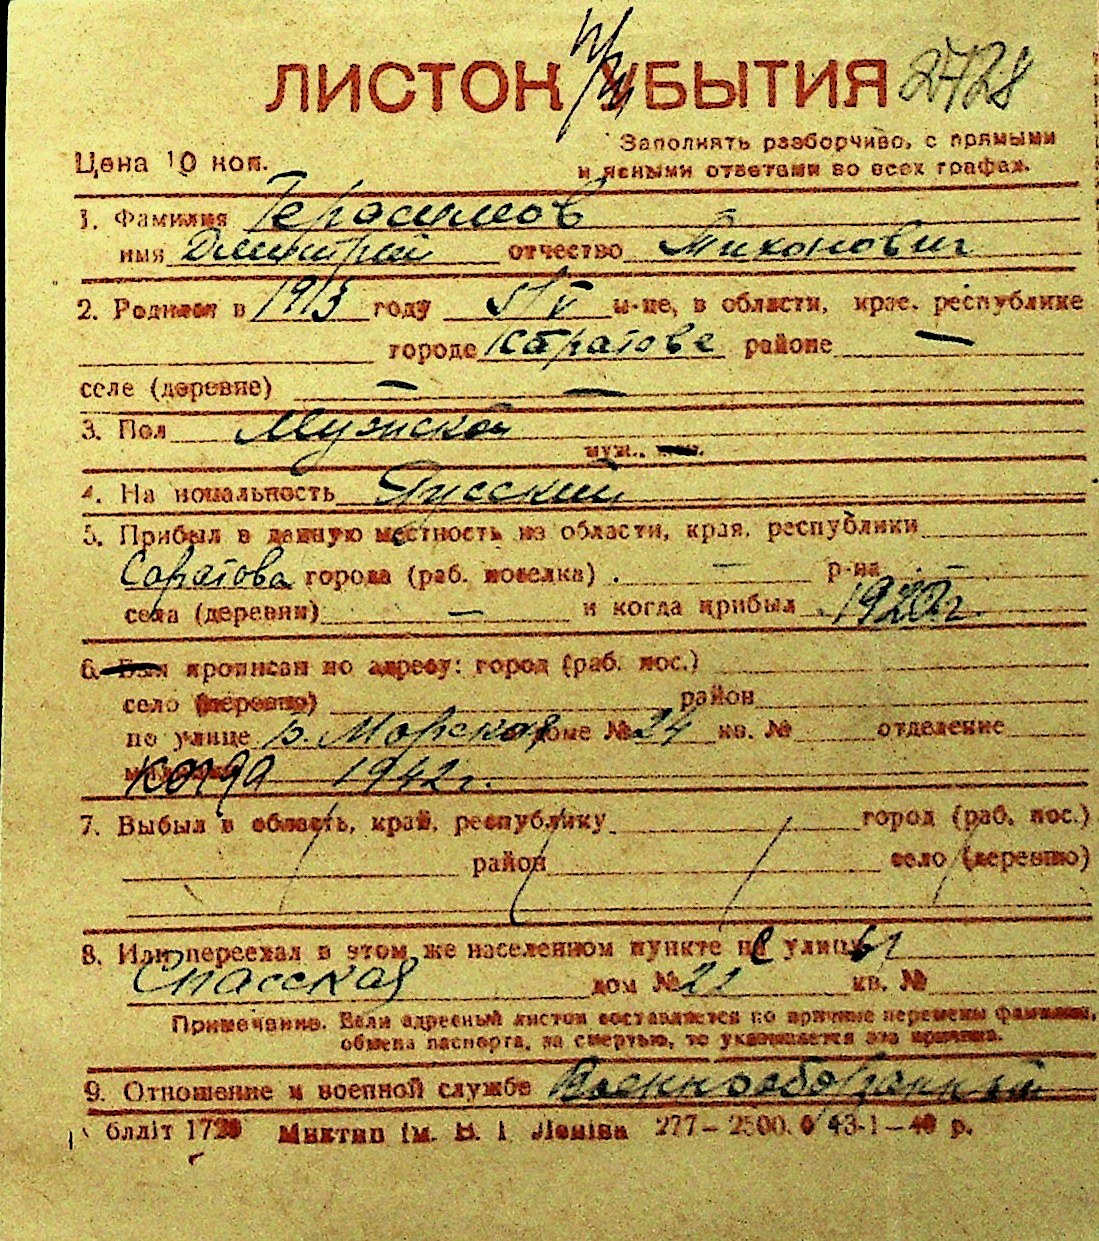 ЛИСТОК УБЫТИЯ 2728
Цена 10 коп.
Заполнять разборчиво, с прямыми
и ясными ответами во всех графах.
1. Фамилия Герасимов
имя Дмитрий отчество Тихонович
2. Родился в 1913 году 5/V м-це, в области, крае, республике
городе Саратове районе —
селе (деревне) — —
3. Пол Мужской
муж.,
4. Национальность Русский
5. Прибыл в данную местность из области, края, республики
Саратова города (раб. поселка) . — р-на —
села (деревни) — и когда прибыл 1920 г.
6. Был прописан по адресу: город (раб. пос.)
село (деревню) район
по улице В. Морская доме № 24 кв. № отделение
когда 1942 г.
7. Выбыл в область, край, республику город (раб. пос.)
район село (деревню)
8. Или переехал в этом же населенном пункте с улицы
Спасская дом № 21 кв. №
Примечание. Если адресный листок составляется по причине перемены фамилии,
обмена паспорта, за смертью, то указывается эта причина.
9. Отношение к военной службе Военнообязанный
блліт 1720 Миктип ім. В. І Леніна 277–2500. 43-1–40 р.